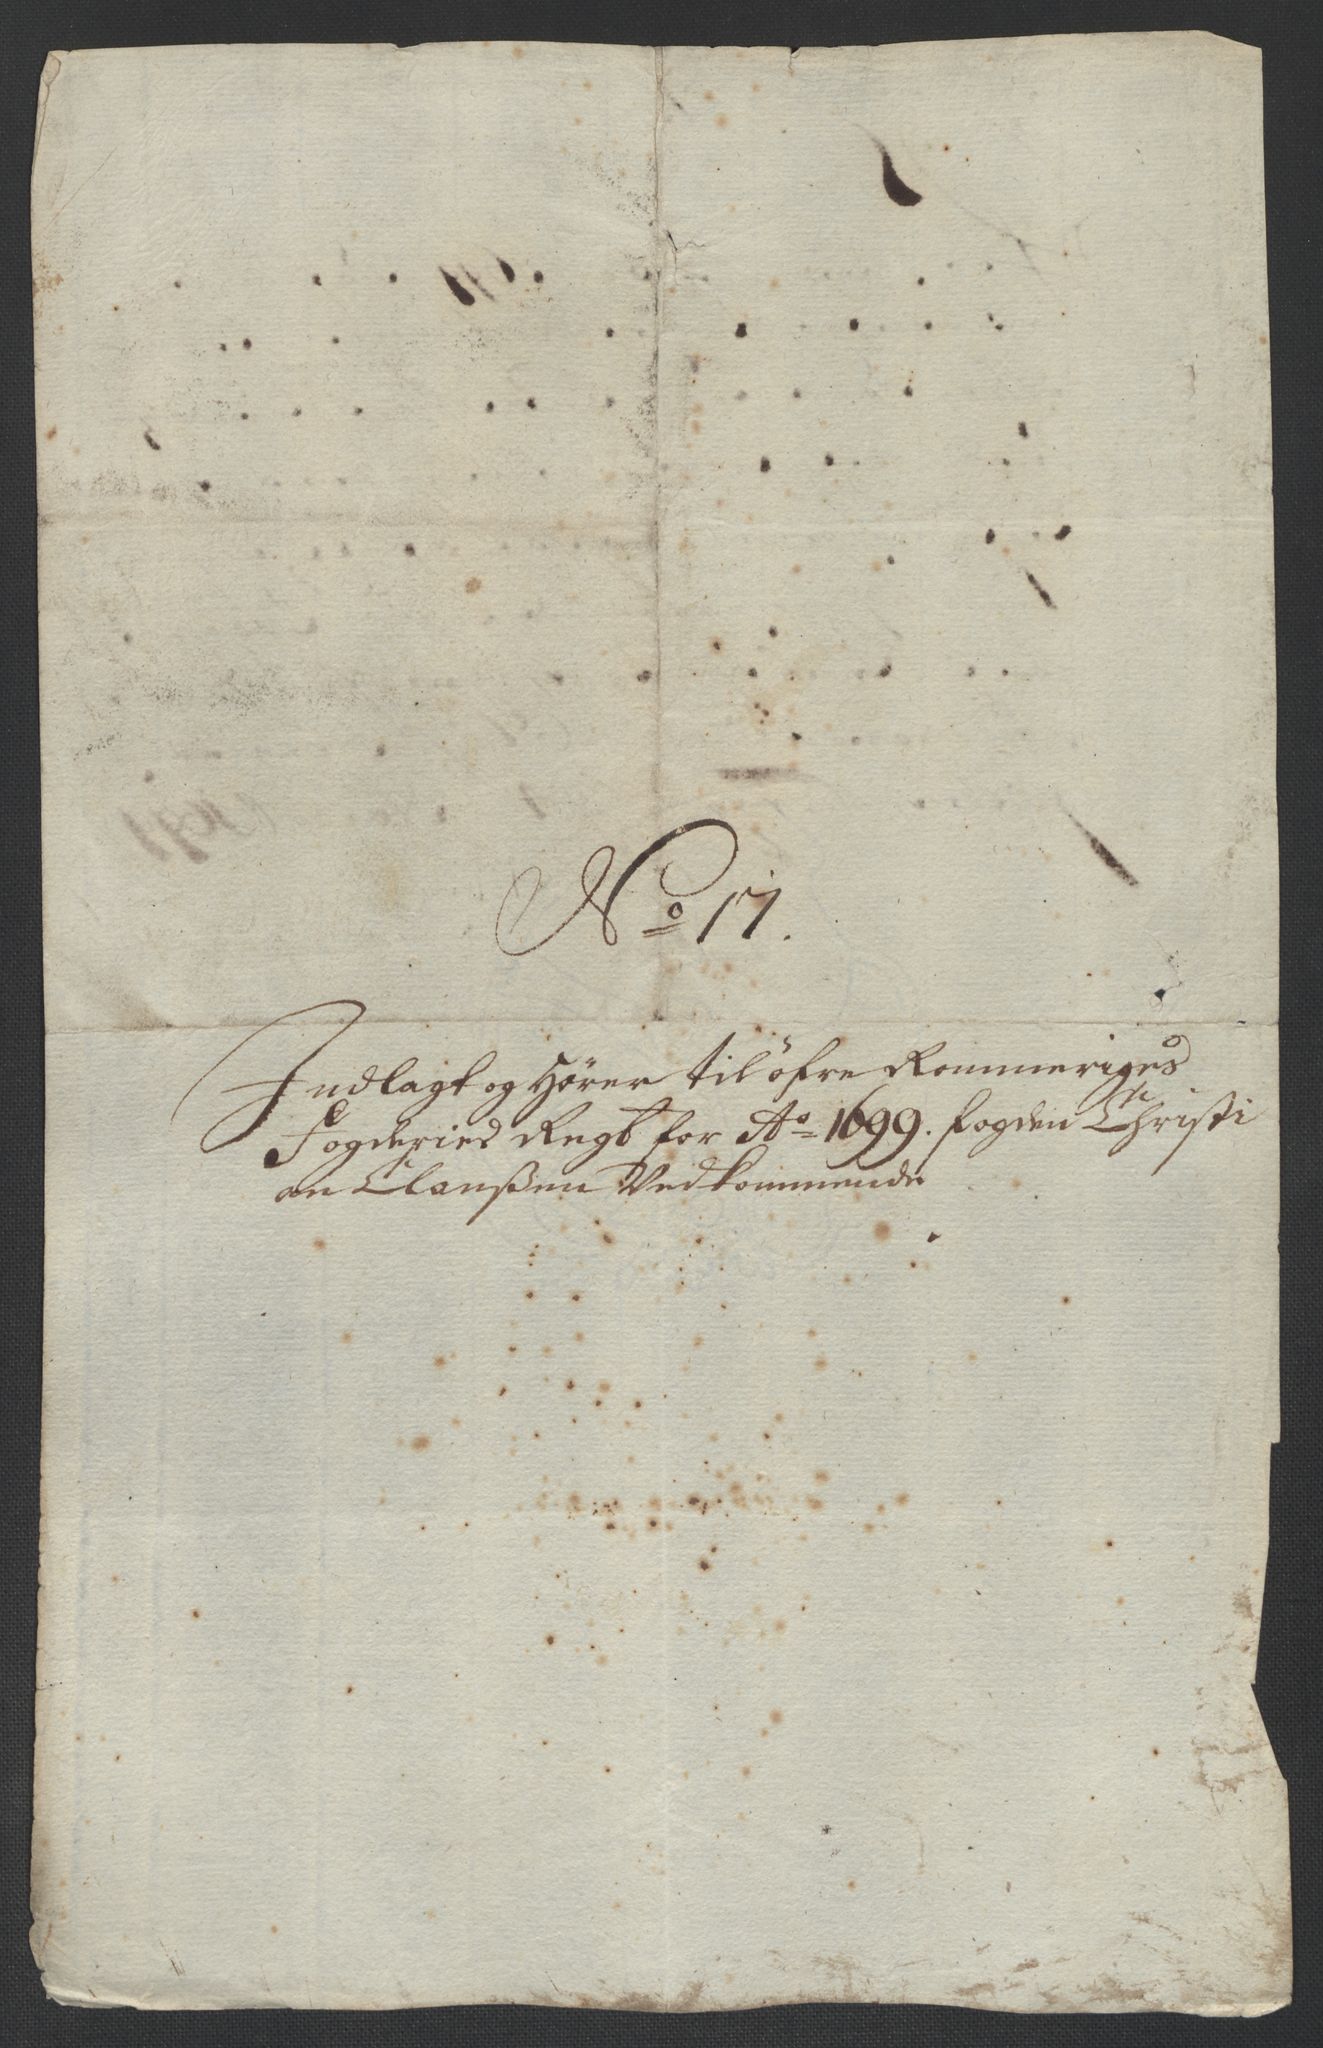 No 17.
Indlagt og Hører til öfre Rommeriges
Fogderies Regb for Ao 1699. fogden Christi
an Clausßen Vedkommende